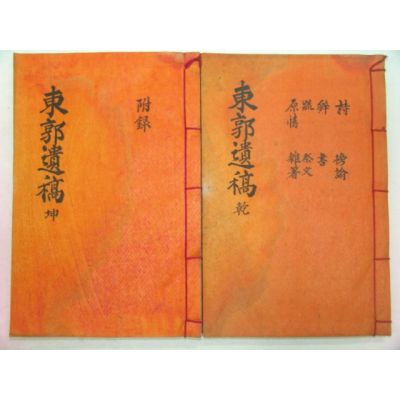 詩 榜諭
辭 書
疏 祭文
原情 雜著
東郭遺稿 乾
附録
東郭遺稿 坤